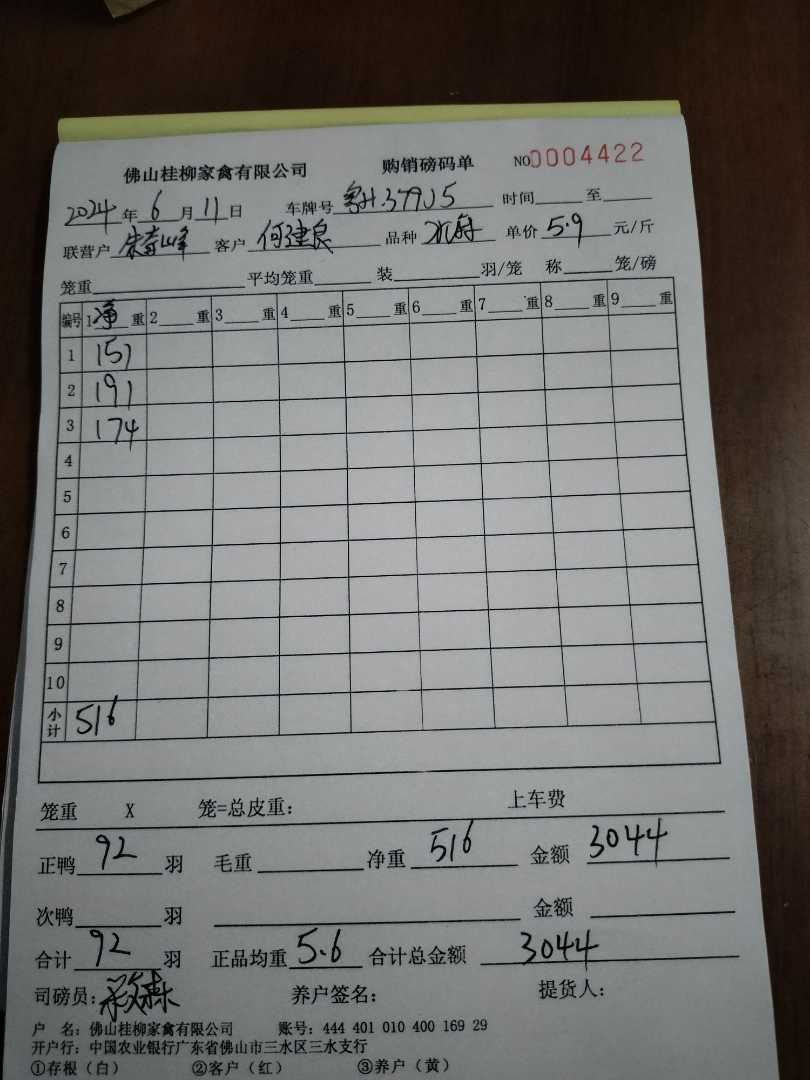 佛山桂柳家禽有限公司 购销磅码单 NO 0004422
2024年6月11日 车牌号 粤H379J5 时间 至
联营户 客户 何建良 品种 单价 5.9 元/斤
笼重 平均笼重 装 羽/笼 称 笼/磅
编号 1 净 重 2 重 3 重 4 重 5 重 6 重 7 重 8 重 9 重
1 151
2 191
3 174
4
5
6
7
8
9
10
小计 516
笼重 X 笼=总皮重: 上车费
正鸭 92 羽 毛重 净重 516 金额 3044
次鸭 羽 金额
合计 92 羽 正品均重 5.6 合计总金额 3044
司磅员: 养户签名: 提货人:
户 名: 佛山桂柳家禽有限公司 账号: 444 401 010 400 169 29
开户行: 中国农业银行广东省佛山市三水区三水支行
①存根（白） ②客户（红） ③养户（黄）